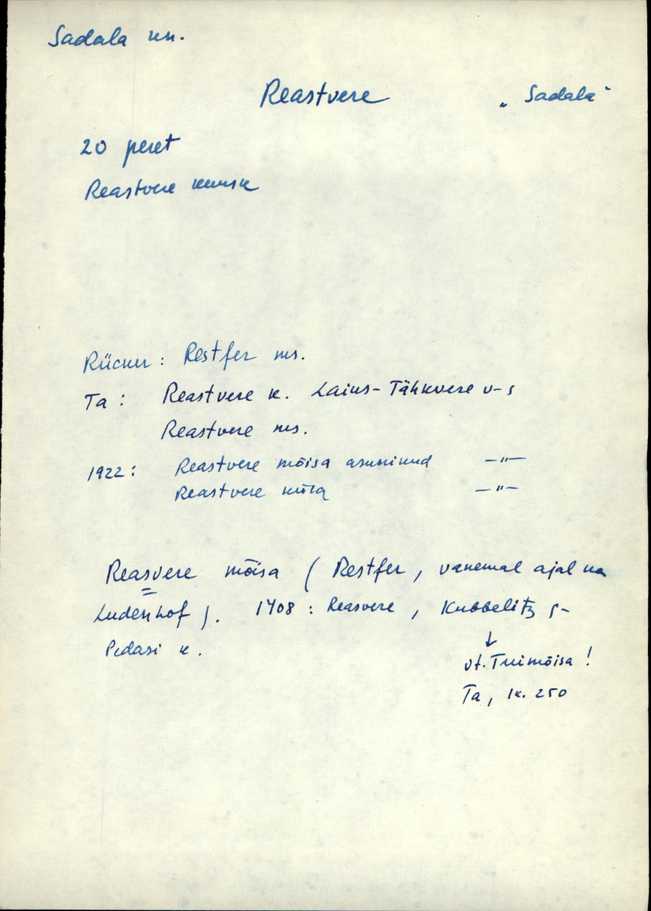 Sadala kn.
Reastvere „Sadala"
20 peret
Reastvere keskus
Rücker: Restfer ms.
Ta: Reastvere k. Laius-Tähkvere v-s
Reastvere ms.
1922: Reastvere mõisa asunikud —"—
Reastvere küla —"—
Reasvere mõisa (Restfer, vanemal ajal ka
Ludenhof). 1408: Reasvere, Kubbelitz s-
Pedasi k.
↓
vt. Truimõisa!
Ta, lk. 250